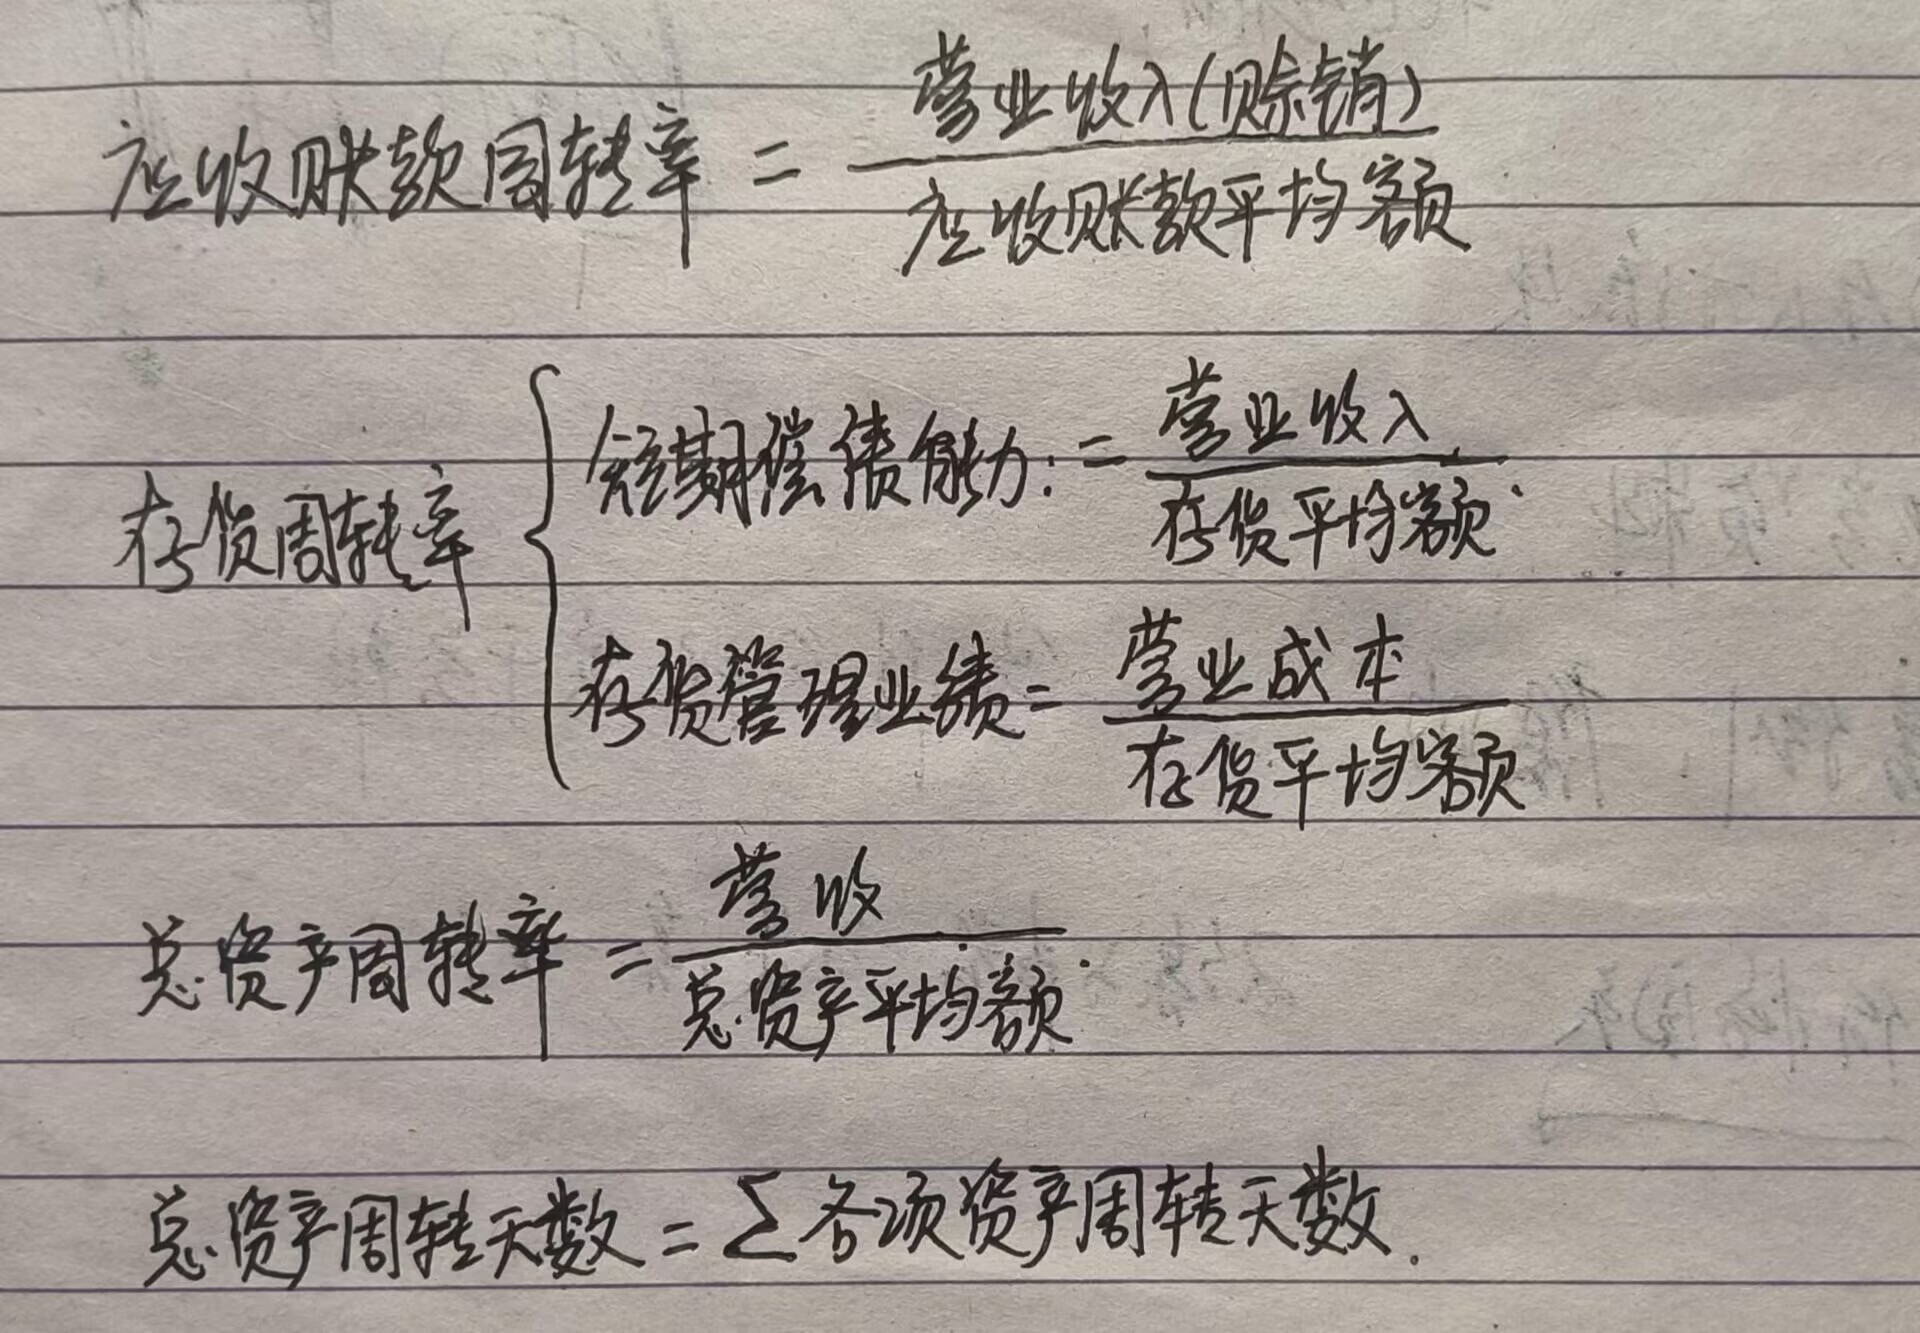 应收账款周转率 = 营业收入(赊销) / 应收账款平均额
存货周转率 { 短期偿债能力: = 营业收入 / 存货平均额
存货管理业绩 = 营业成本 / 存货平均额
总资产周转率 = 营收 / 总资产平均额
总资产周转天数 = ∑各项资产周转天数.